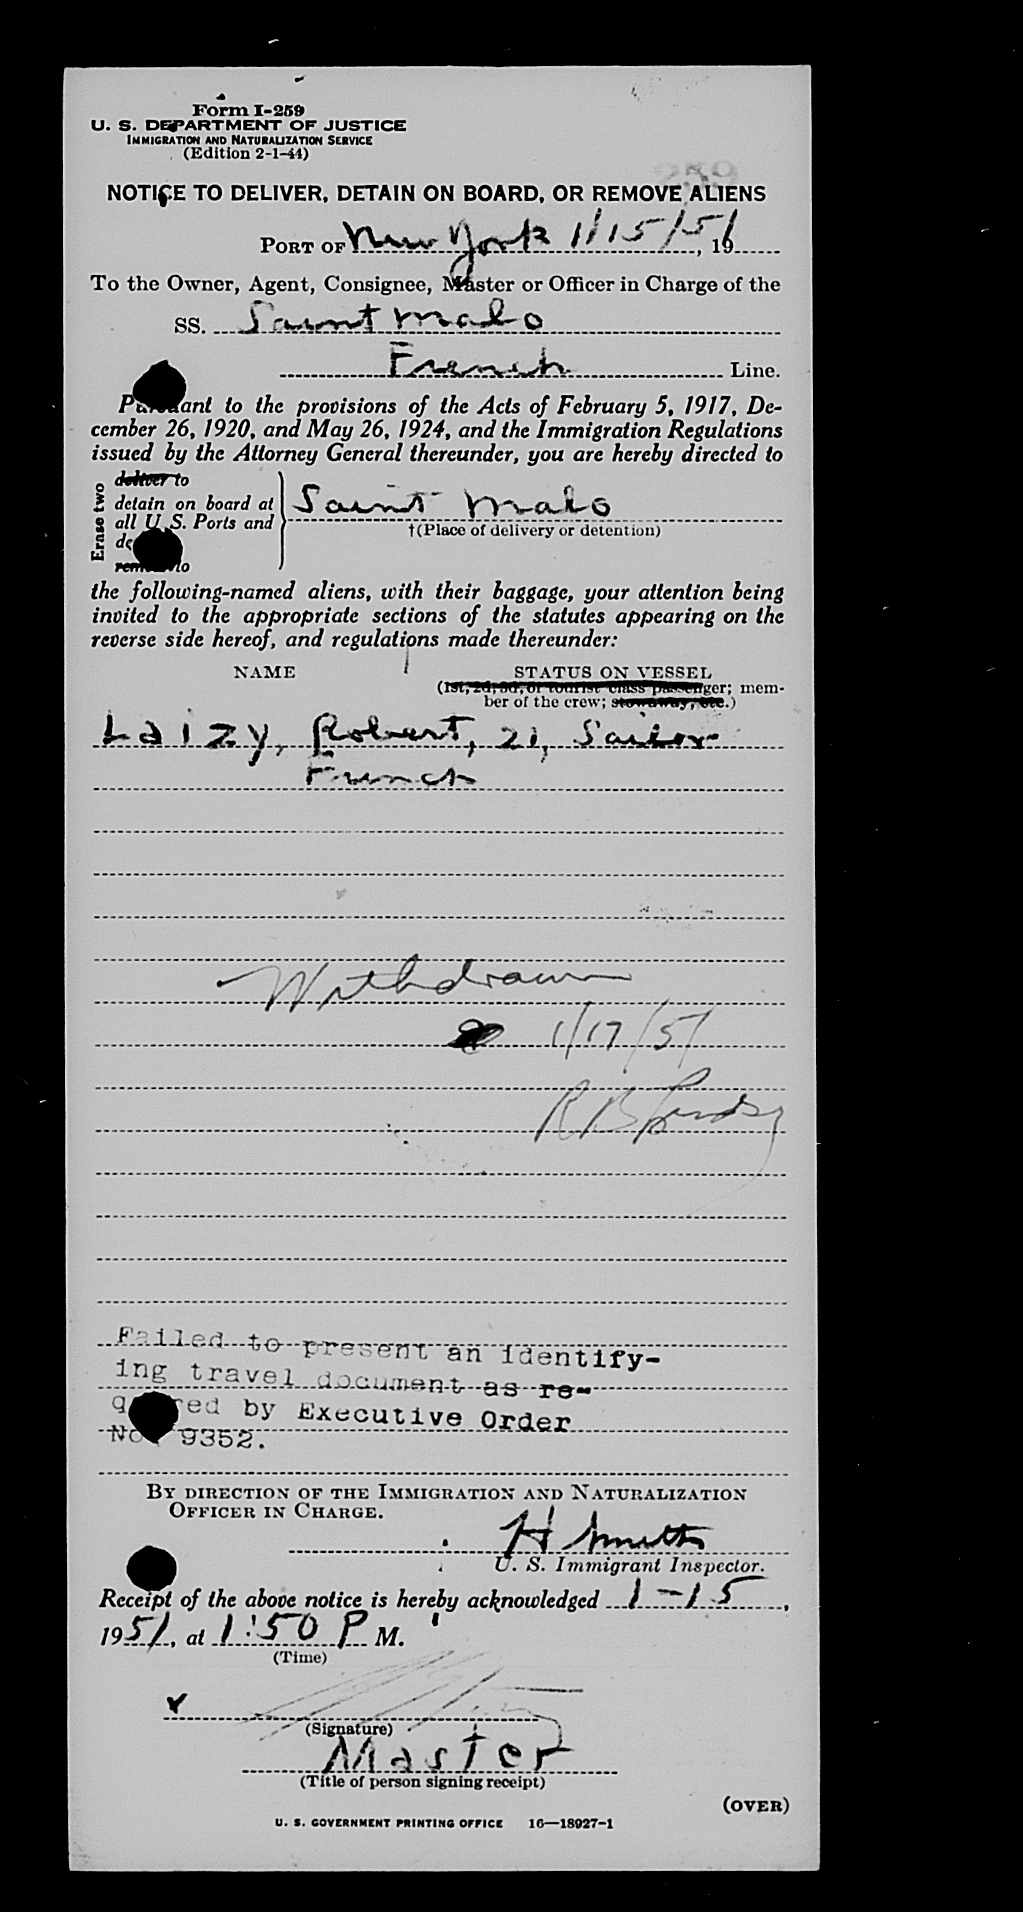 Form I-259
U. S. DEPARTMENT OF JUSTICE
IMMIGRATION AND NATURALIZATION SERVICE
(Edition 2-1-44)
259
NOTICE TO DELIVER, DETAIN ON BOARD, OR REMOVE ALIENS
PORT OF New York 1/15/51, 19
To the Owner, Agent, Consignee, Master or Officer in Charge of the
SS. Saint Malo
French Line.
Pursuant to the provisions of the Acts of February 5, 1917, De-
cember 26, 1920, and May 26, 1924, and the Immigration Regulations
issued by the Attorney General thereunder, you are hereby directed to
Erase two
deliver to
detain on board at
all U. S. Ports and
remove to
Saint Malo
†(Place of delivery or detention)
the following-named aliens, with their baggage, your attention being
invited to the appropriate sections of the statutes appearing on the
reverse side hereof, and regulations made thereunder:
NAME STATUS ON VESSEL
(1st, 2d, 3d, or tourist class passenger; mem-
ber of the crew; stowaway, etc.)
Laizy, Robert, 21, Sailor
French
Withdrawn
1/17/51
R B
Failed to present an identify-
ing travel document as re-
quired by Executive Order
No. 9352.
BY DIRECTION OF THE IMMIGRATION AND NATURALIZATION
OFFICER IN CHARGE.
H Smith
U. S. Immigrant Inspector.
Receipt of the above notice is hereby acknowledged 1-15,
1951, at 1:50 P M.
(Time)
(Signature)
Master
(Title of person signing receipt)
(OVER)
U. S. GOVERNMENT PRINTING OFFICE 16—18927-1